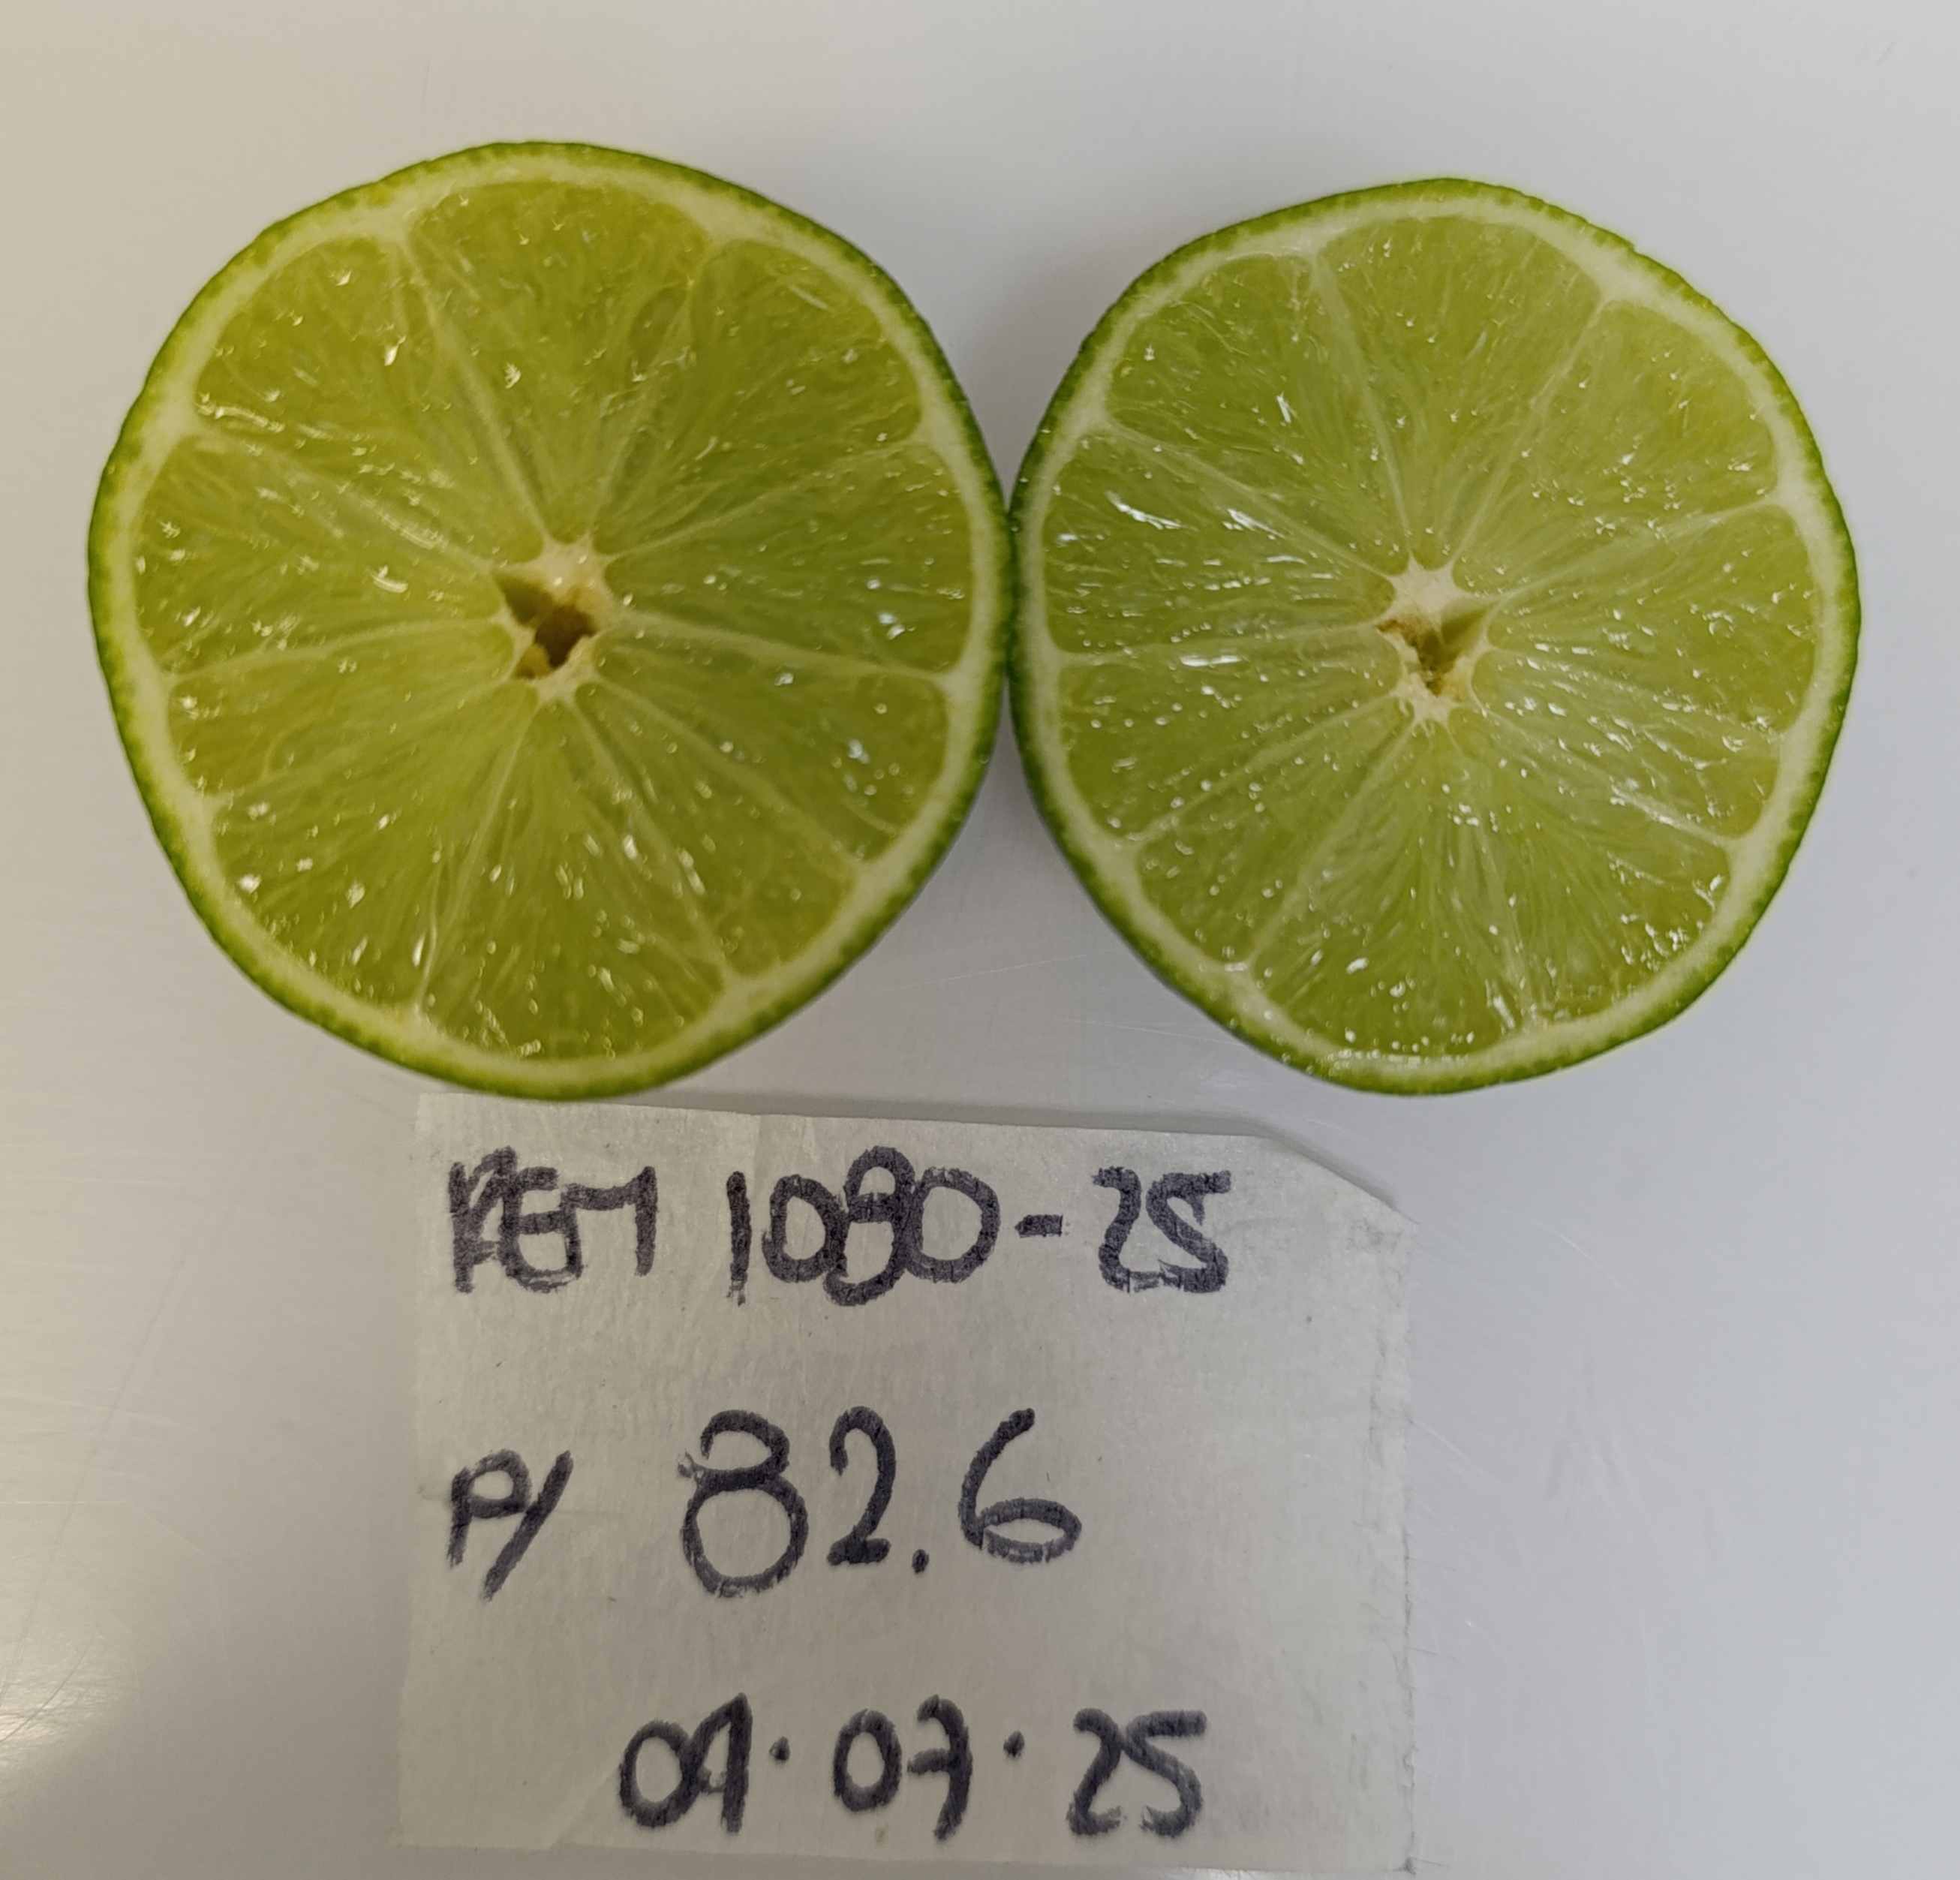 REM 1080-25
P/ 82.6
09.07.25